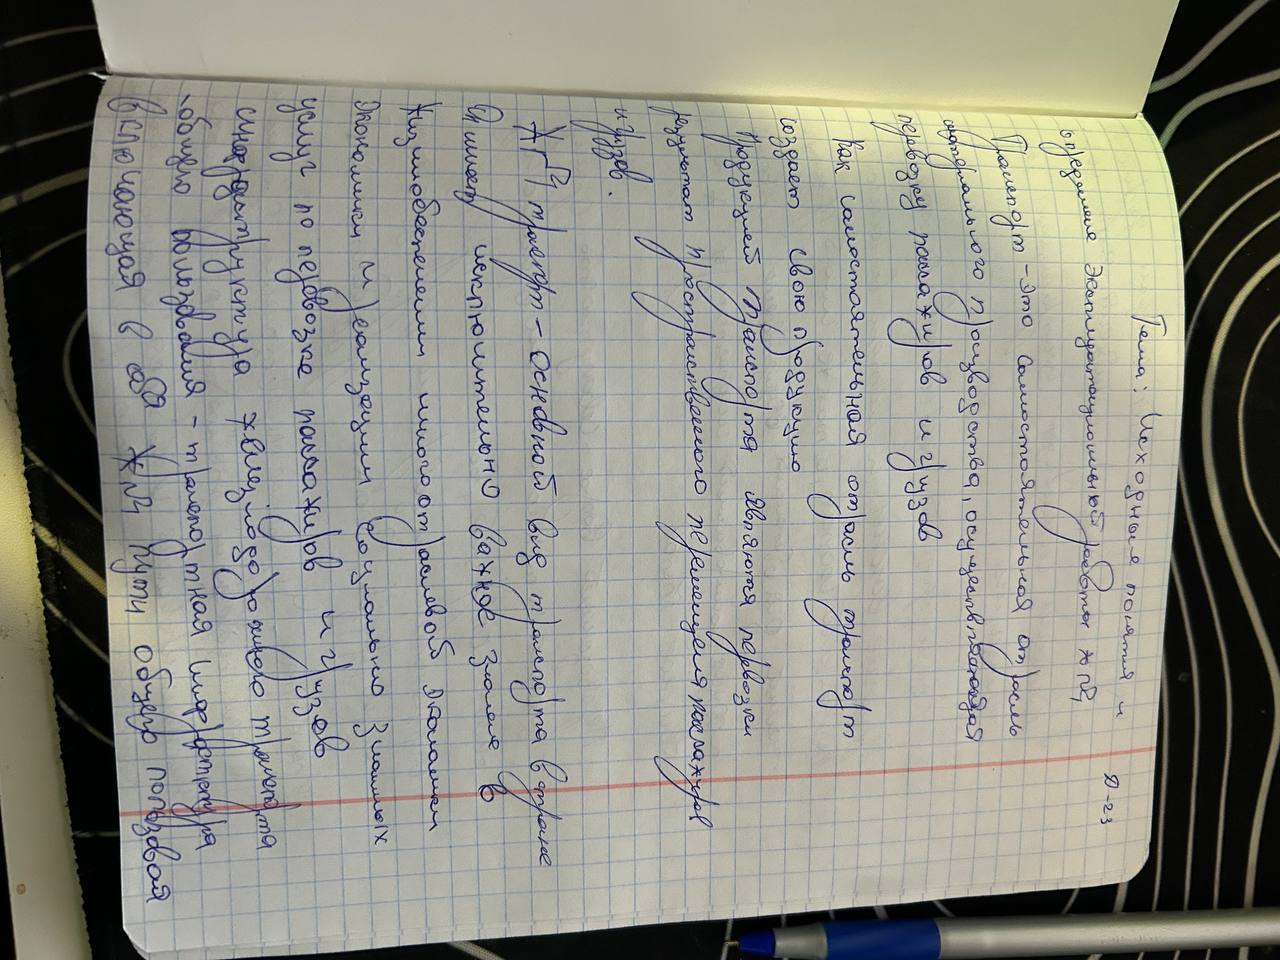 Тема: Исходные понятия и
определение эксплуатационной работы ж.д.
Д-23
Транспорт - это самостоятельная отрасль
материального производства, осуществляющая
перевозку пассажиров и грузов
Как самостоятельная отрасль транспорт
создает свою продукцию
Продукцией транспорта являются перевозки
результат пространственного перемещеня пассажиров
и грузов.
транспорт - основной вид транспорта в стране
исключительно важное значение в
жизнеобеспечении многоотраслевой экономики
экономики и реализации социально значимых
услуг по перевозке пассажиров и грузов
инфраструктура железнодорожного транспорта
общего пользования - транспортная инфраструктура
включающая в себя ЖД пути общего пользования